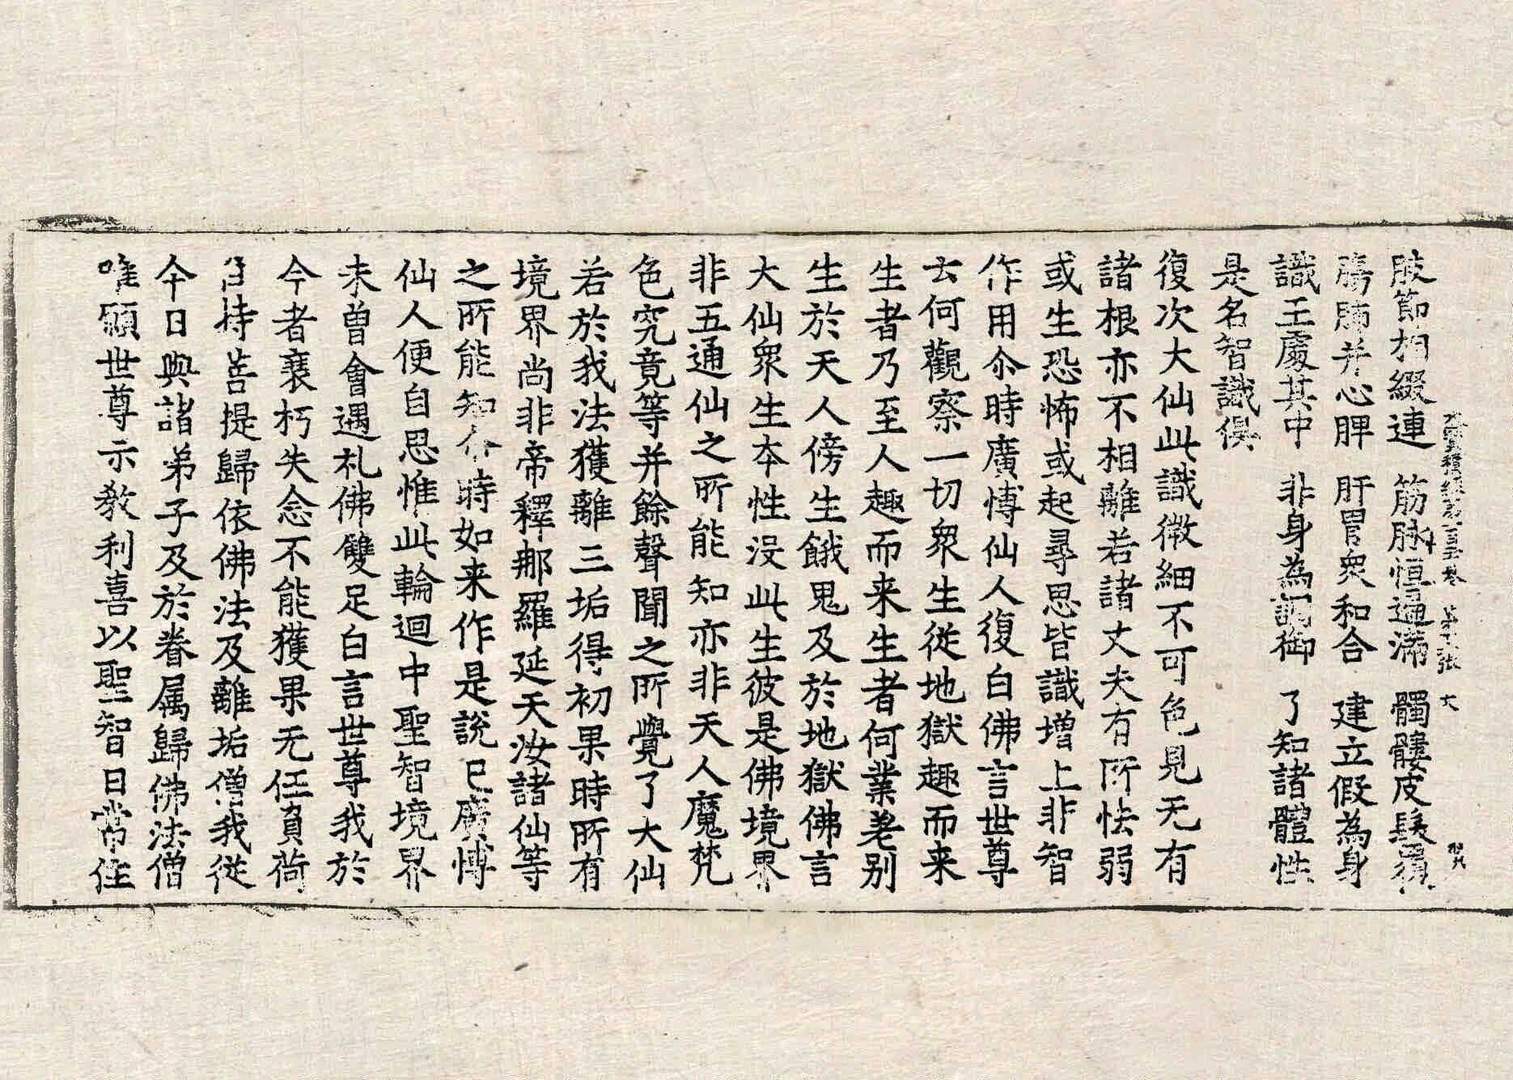 肢節相綴連 筋脉恒遍滿 髑髏皮髮覆
腸肺并心脾 肝胃衆和合 建立假為身
識王處其中 非身為調御 了知諸體性
是名智識俱
復次大仙此識微細不可色見无有
諸根亦不相離若諸丈夫有所怯弱
或生恐怖或起尋思皆識增上非智
作用尒時廣愽仙人復白佛言世尊
云何觀察一切衆生從地獄趣而来
生者乃至人趣而来生者何業差别
生於天人傍生餓鬼及於地獄佛言
大仙衆生本性没此生彼是佛境界
非五通仙之所能知亦非天人魔梵
色究竟等并餘聲聞之所覺了大仙
若於我法獲離三垢得初果時所有
境界尚非帝釋那羅延天汝諸仙等
之所能知尒時如来作是說已廣愽
仙人便自思惟此輪迴中聖智境界
未曽會遇礼佛雙足白言世尊我於
今者衰朽失念不能獲果无任負荷
持菩提歸依佛法及離垢僧我從
今日與諸弟子及於眷属歸佛法僧
唯願世尊示教利喜以聖智日常住